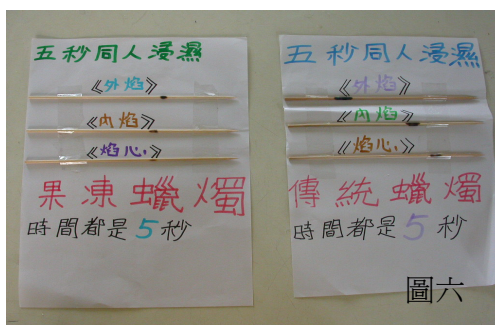 五秒同人浸濕
《外焰》
《內焰》
《焰心》
果凍蠟燭
時間都是5秒
五秒同人浸濕
《外焰》
《內焰》
《焰心》
傳統蠟燭
時間都是5秒
圖六